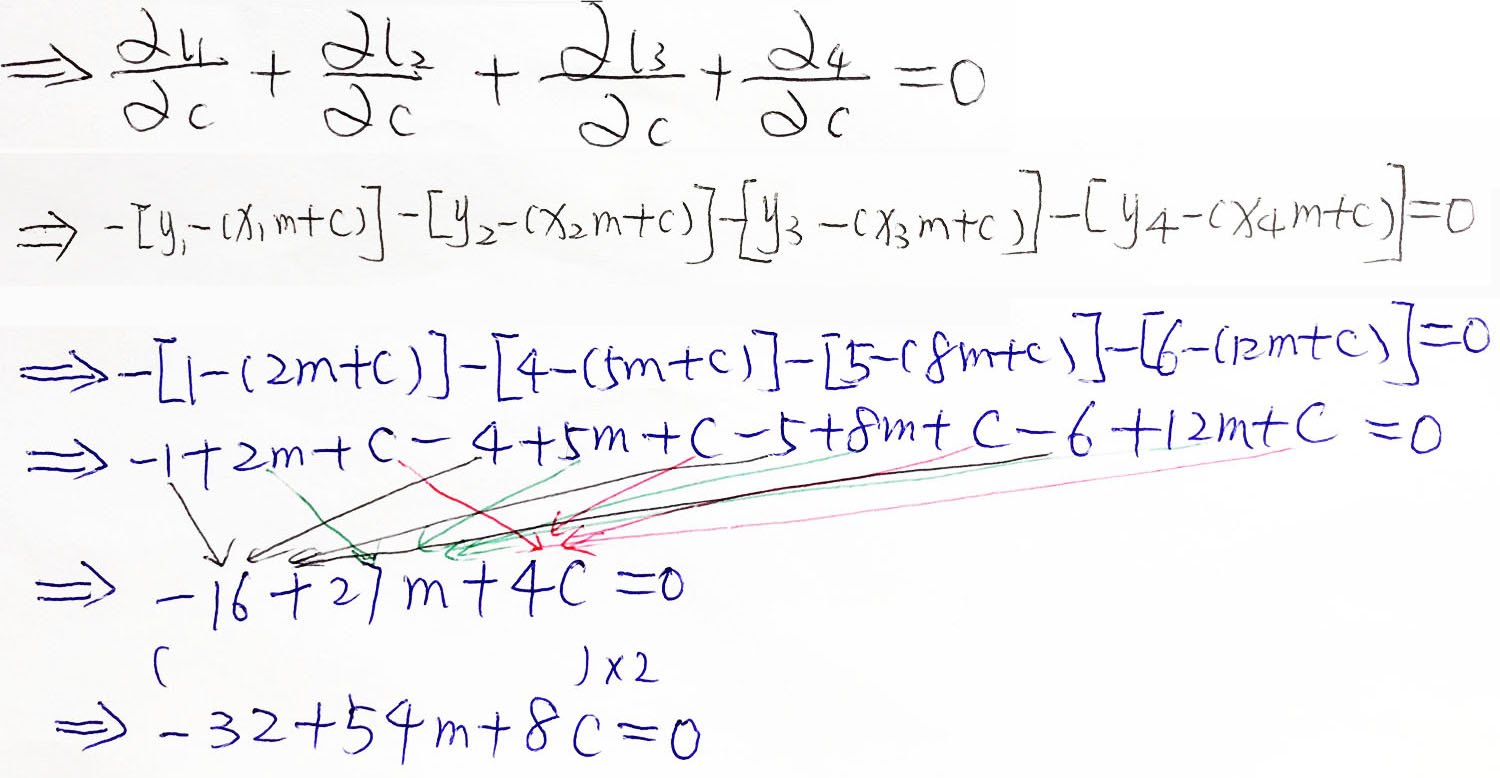 ⇒ ∂l₁/∂c + ∂l₂/∂c + ∂l₃/∂c + ∂4/∂c = 0
⇒ -[y₁-(x₁m+c)]-[y₂-(x₂m+c)]-[y₃-(x₃m+c)]-[y₄-(x₄m+c)]=0
⇒ -[1-(2m+c)]-[4-(5m+c)]-[5-(8m+c)]-[6-(12m+c)]=0
⇒ -1+2m+c-4+5m+c-5+8m+c-6+12m+c=0
⇒ -16+27m+4c=0
( )×2
⇒ -32+54m+8c=0